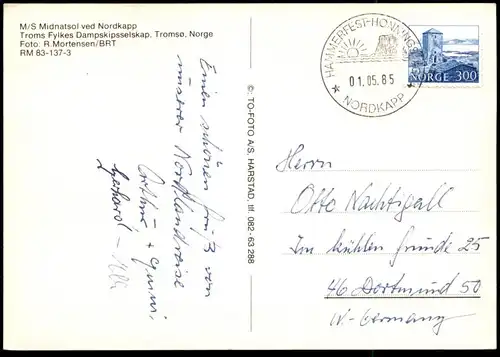 M/S Midnatsol ved Nordkapp
Troms Fylkes Dampskipsselskap, Tromsø, Norge
Foto: R.Mortensen/BRT
RM 83-137-3
Einen schönen Gruß von
unserer Nordlandreise
Arthur + Gunni,
Gerhard -
©: TO-FOTO A/S, HARSTAD, Tlf. 082-63 288
HAMMERFEST-HONNINGSV
01.05.85
NORDKAPP
NORGE 300
Herrn
Otto Nachtigall
Im kühlen Grunde 25
46 Dortmund 50
W.-Germany